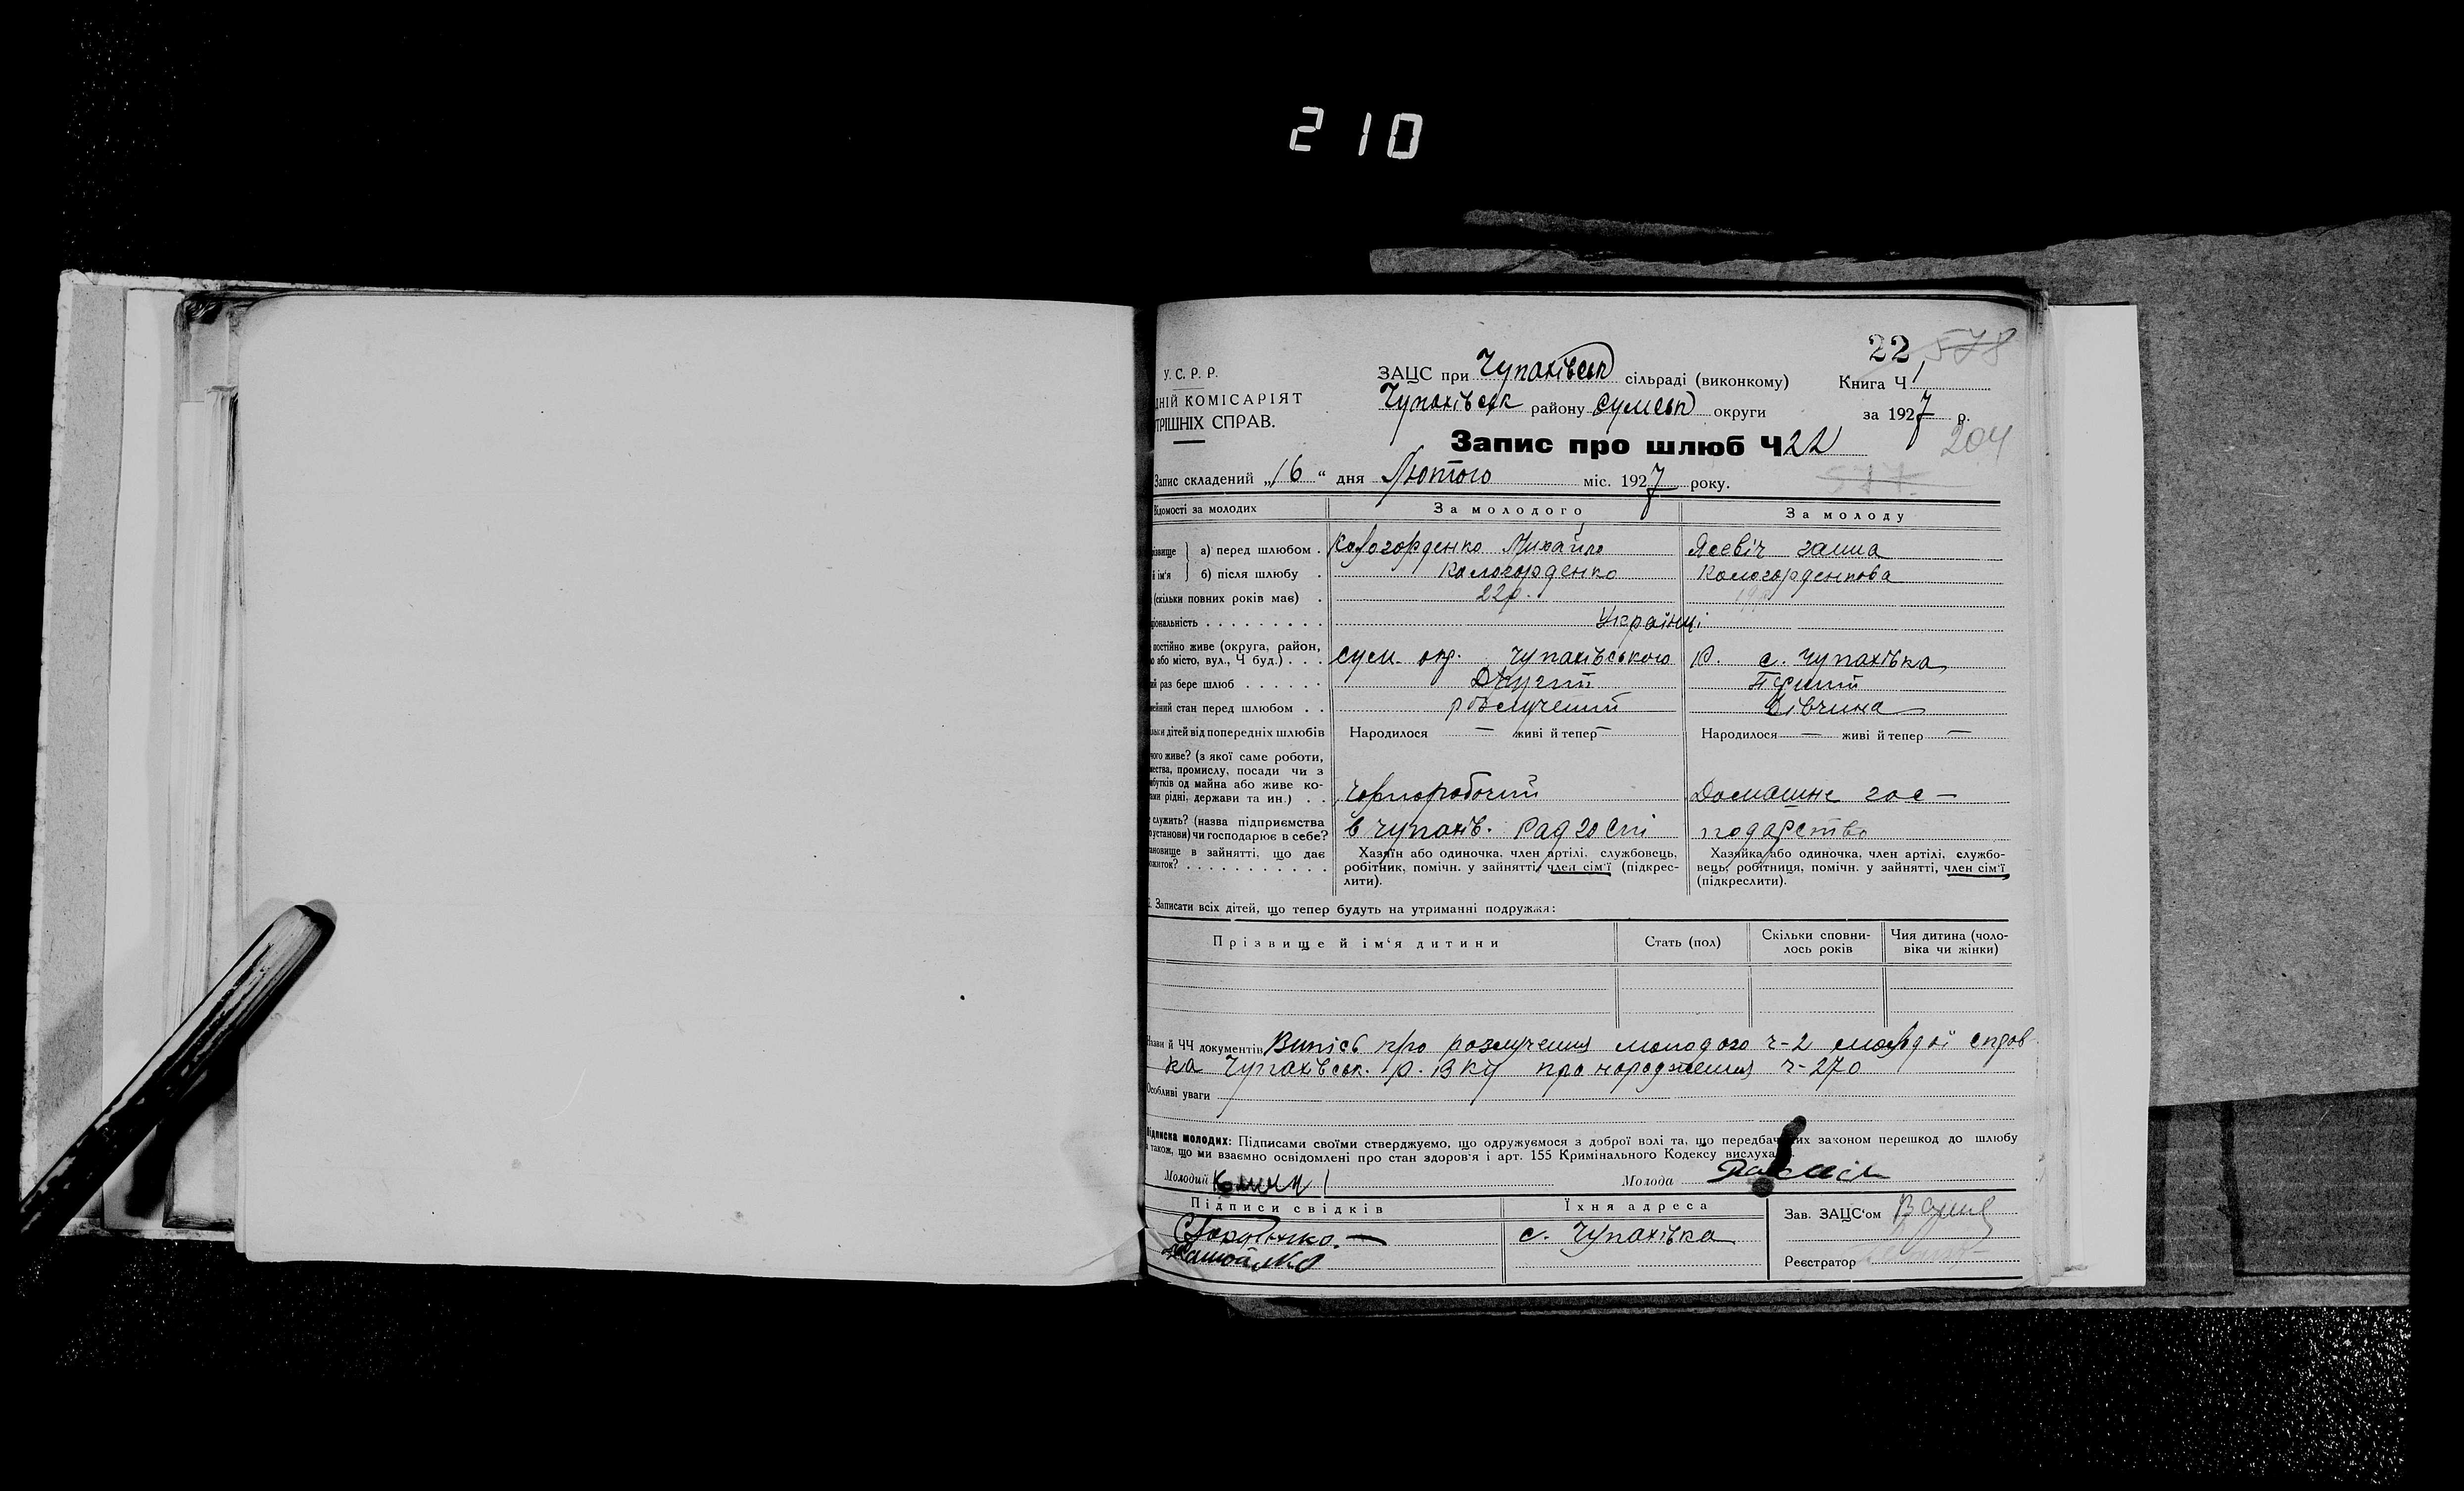 210
22 578
У. С. Р. Р.
ДНІЙ КОМІСАРІЯТ
ТРІШНІХ СПРАВ.
ЗАЦС при Чупахівськ сільраді (виконкому) Книга Ч 1
Чупахівськ району Сумськ округи за 1927 р.
Запис про шлюб Ч 22
204
577
Запис складений „16“ дня Лютого міс. 1927 року.
Відомості за молодих За молодого За молоду
ізвище а) перед шлюбом . Кологорденко Михайло Ясевіч Ганна
й ім'я б) після шлюбу . Кологорденко Кологорденкова
(скільки повних років має) . 22р. 19р
ціональність . . . . . . . . . Українці
постійно живе (округа, район,
о або місто, вул., Ч буд.) . . . Сум. окр. Чупахівського р. с. Чупахівка
ий раз бере шлюб . . . . . . Другий Перший
мейний стан перед шлюбом . . розлучений Дівчина
льки дітей від попередніх шлюбів Народилося — живі й тепер — Народилося — живі й тепер —
чого живе? (з якої саме роботи,
мества, промислу, посади чи з
ибутків од майна або живе ко-
тами рідні, держави та ин.) . . Чорноробочий Домашнє гос-
служить? (назва підприємства
о установи) чи господарює в себе? в Чупахів. Радгоспі подарство
ановище в зайнятті, що дає
ожиток? . . . . . . . . . . .
Хазяїн або одиночка, член артілі, службовець, робітник, помічн. у зайнятті, член сім'ї (підкрес-
лити).
Хазяйка або одиночка, член артілі, службо-
вець, робітниця, помічн. у зайнятті, член сім'ї
(підкреслити).
Записати всіх дітей, що тепер будуть на утриманні подружжя:
Прізвище й ім'я дитини Стать (пол) Скільки сповни-
лось років Чия дитина (чоло-
віка чи жінки)
Назви й ЧЧ документів Випісь про розлучення молодого ч-2 молодої справ
ка Чупахівськ. р. ВКУ про народження ч-270
Особливі уваги
Підписка молодих: Підписами своїми стверджуємо, що одружуємося з доброї волі та, що передбачених законом перешкод до шлюбу
а також, що ми взаємно освідомлені про стан здоров'я і арт. 155 Кримінального Кодексу вислуха
Молодий Молода
Підписи свідків Їхня адреса Зав. ЗАЦС'ом
с. Чупахівка
Реєстратор